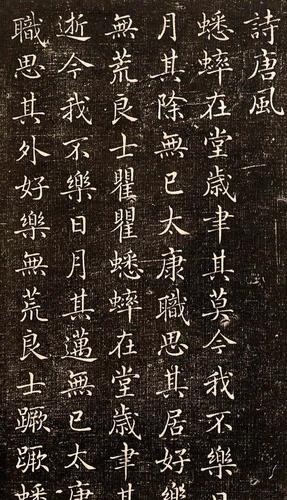 詩唐風
蟋蟀在堂歲聿其莫今我不樂日
月其除無已太康職思其居好樂
無荒良士瞿瞿蟋蟀在堂歲聿其
逝今我不樂日月其邁無已太康
職思其外好樂無荒良士蹶蹶蟋